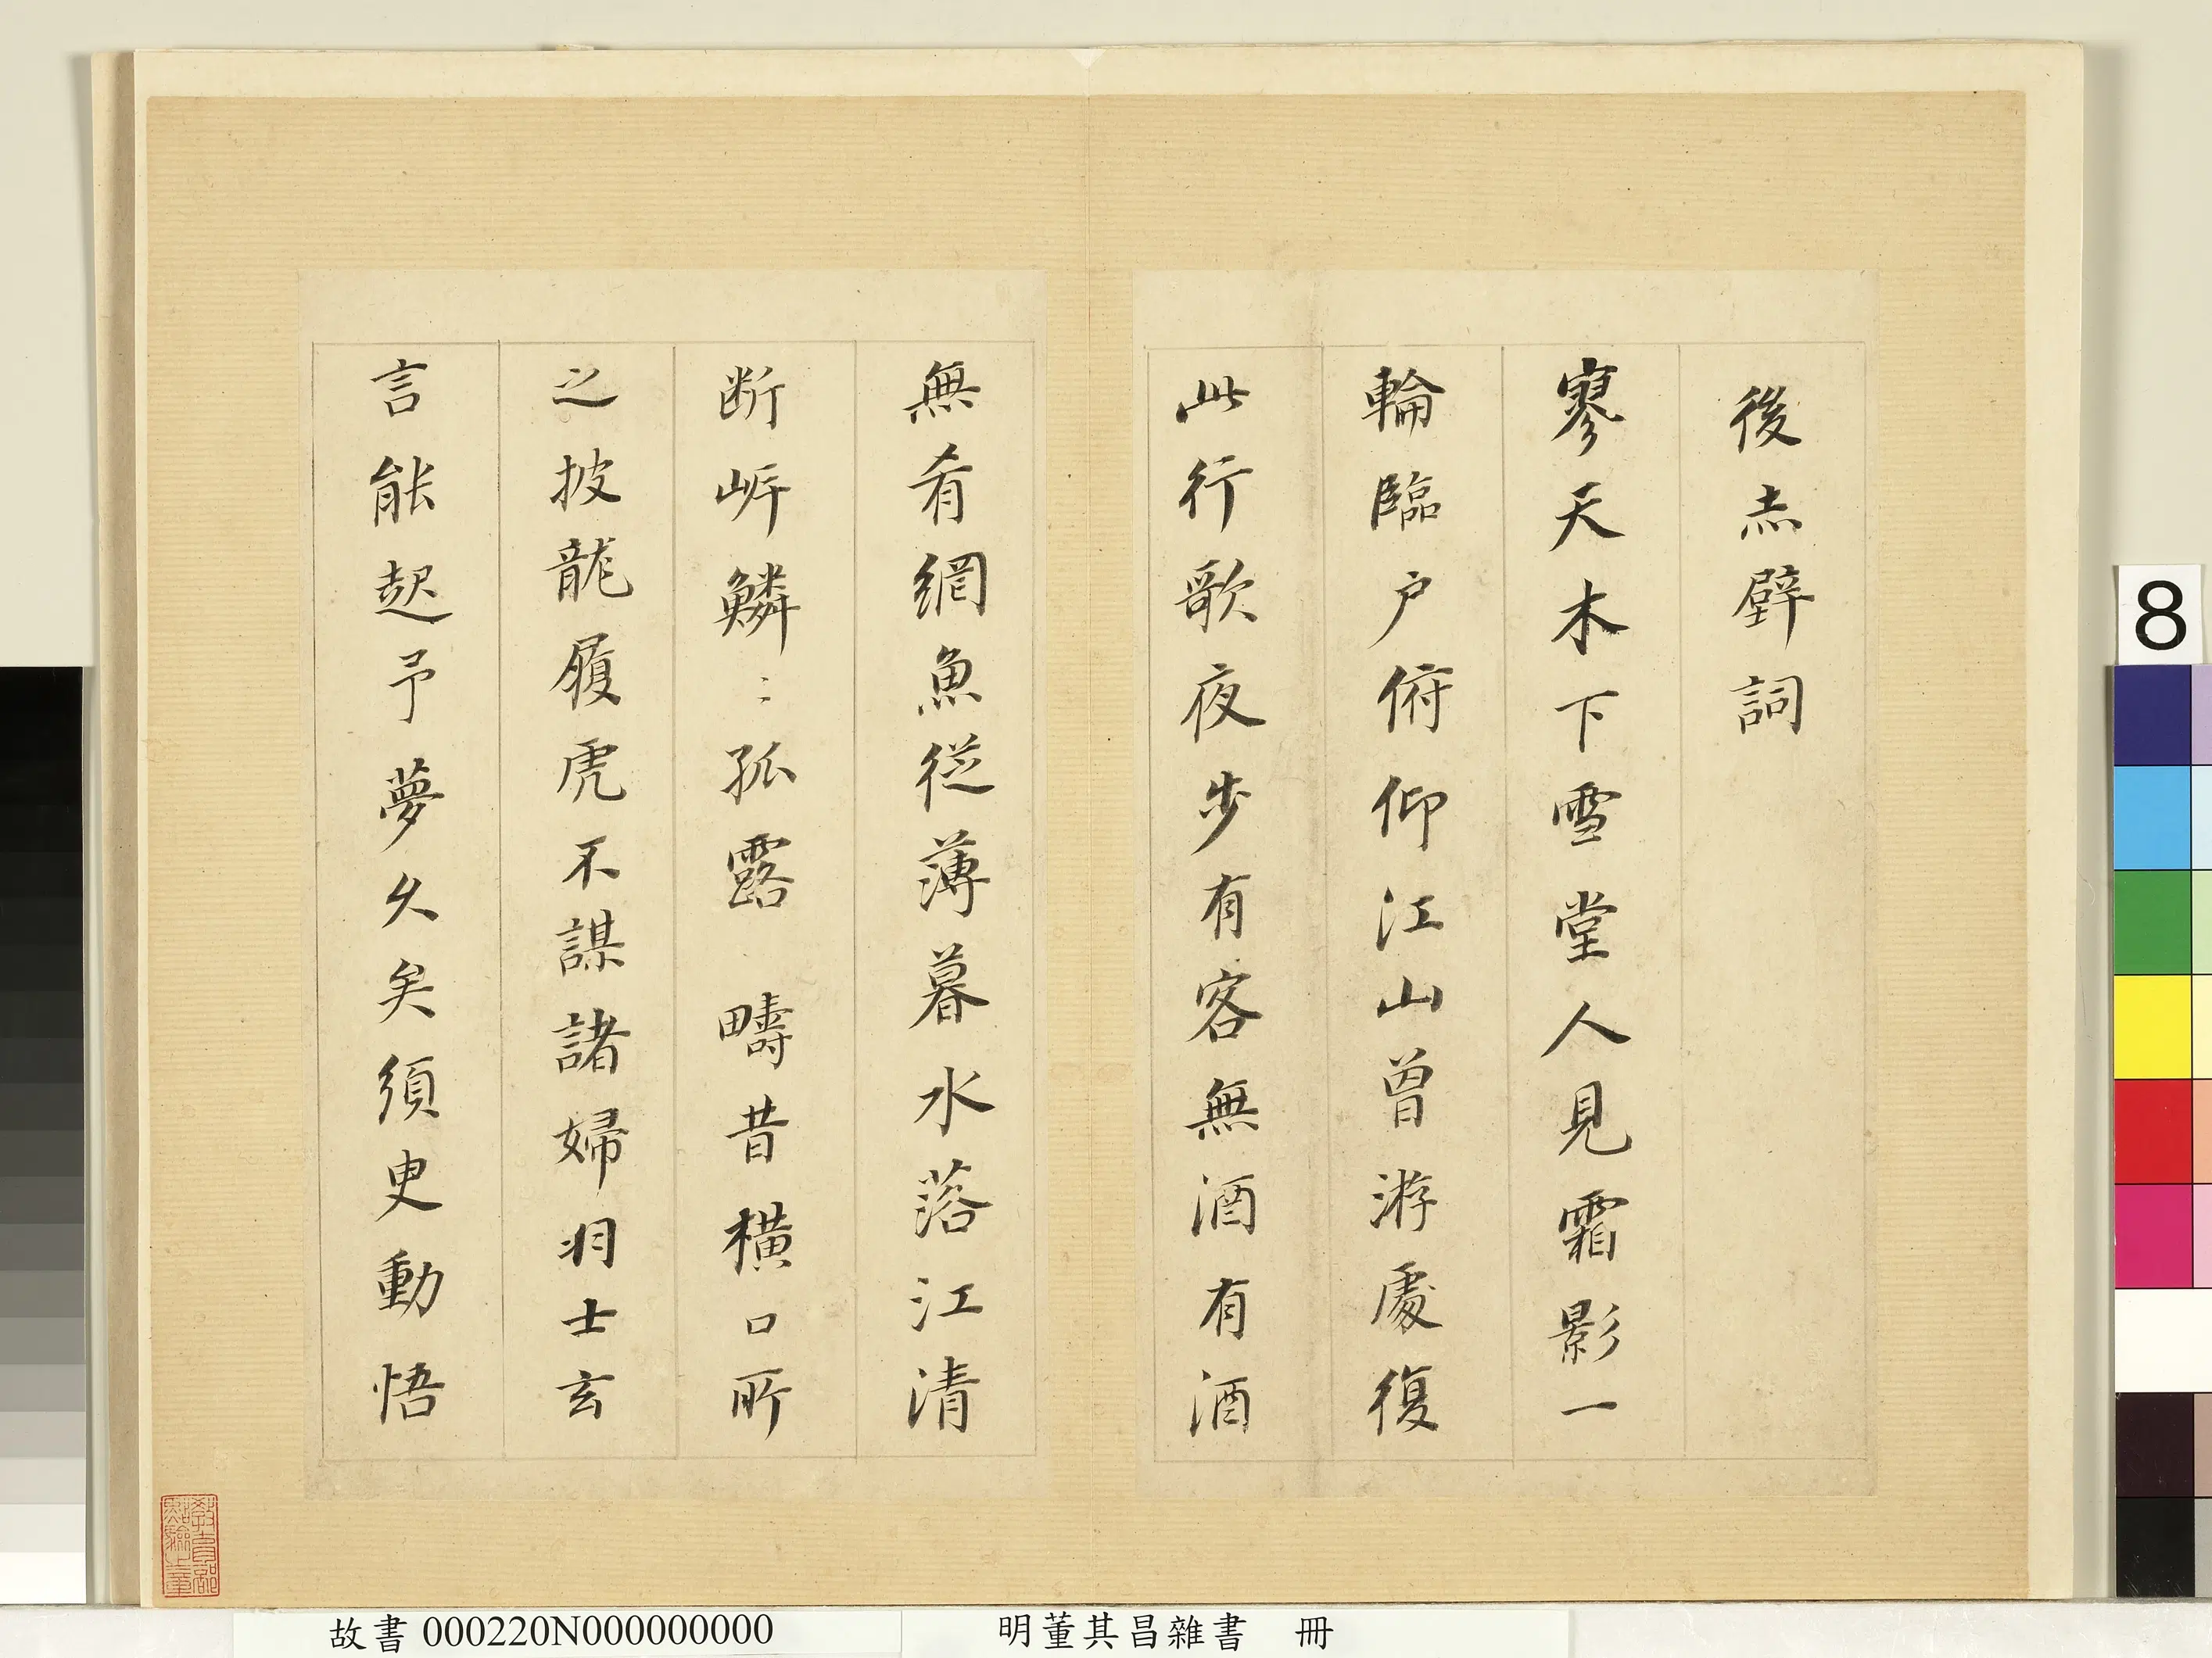 後赤壁詞
寥天木下雪堂人見霜影一
輪臨戶俯仰江山曾游處復
此行歌夜步有客無酒有酒
無肴網魚從薄暮水落江清
断岍鱗〻孤露 疇昔橫口所
之披龍履虎不謀諸婦羽士玄
言能起予夢久矣須臾動悟
教育部
點驗之章
8
故書 000220N000000000
明董其昌雜書 冊